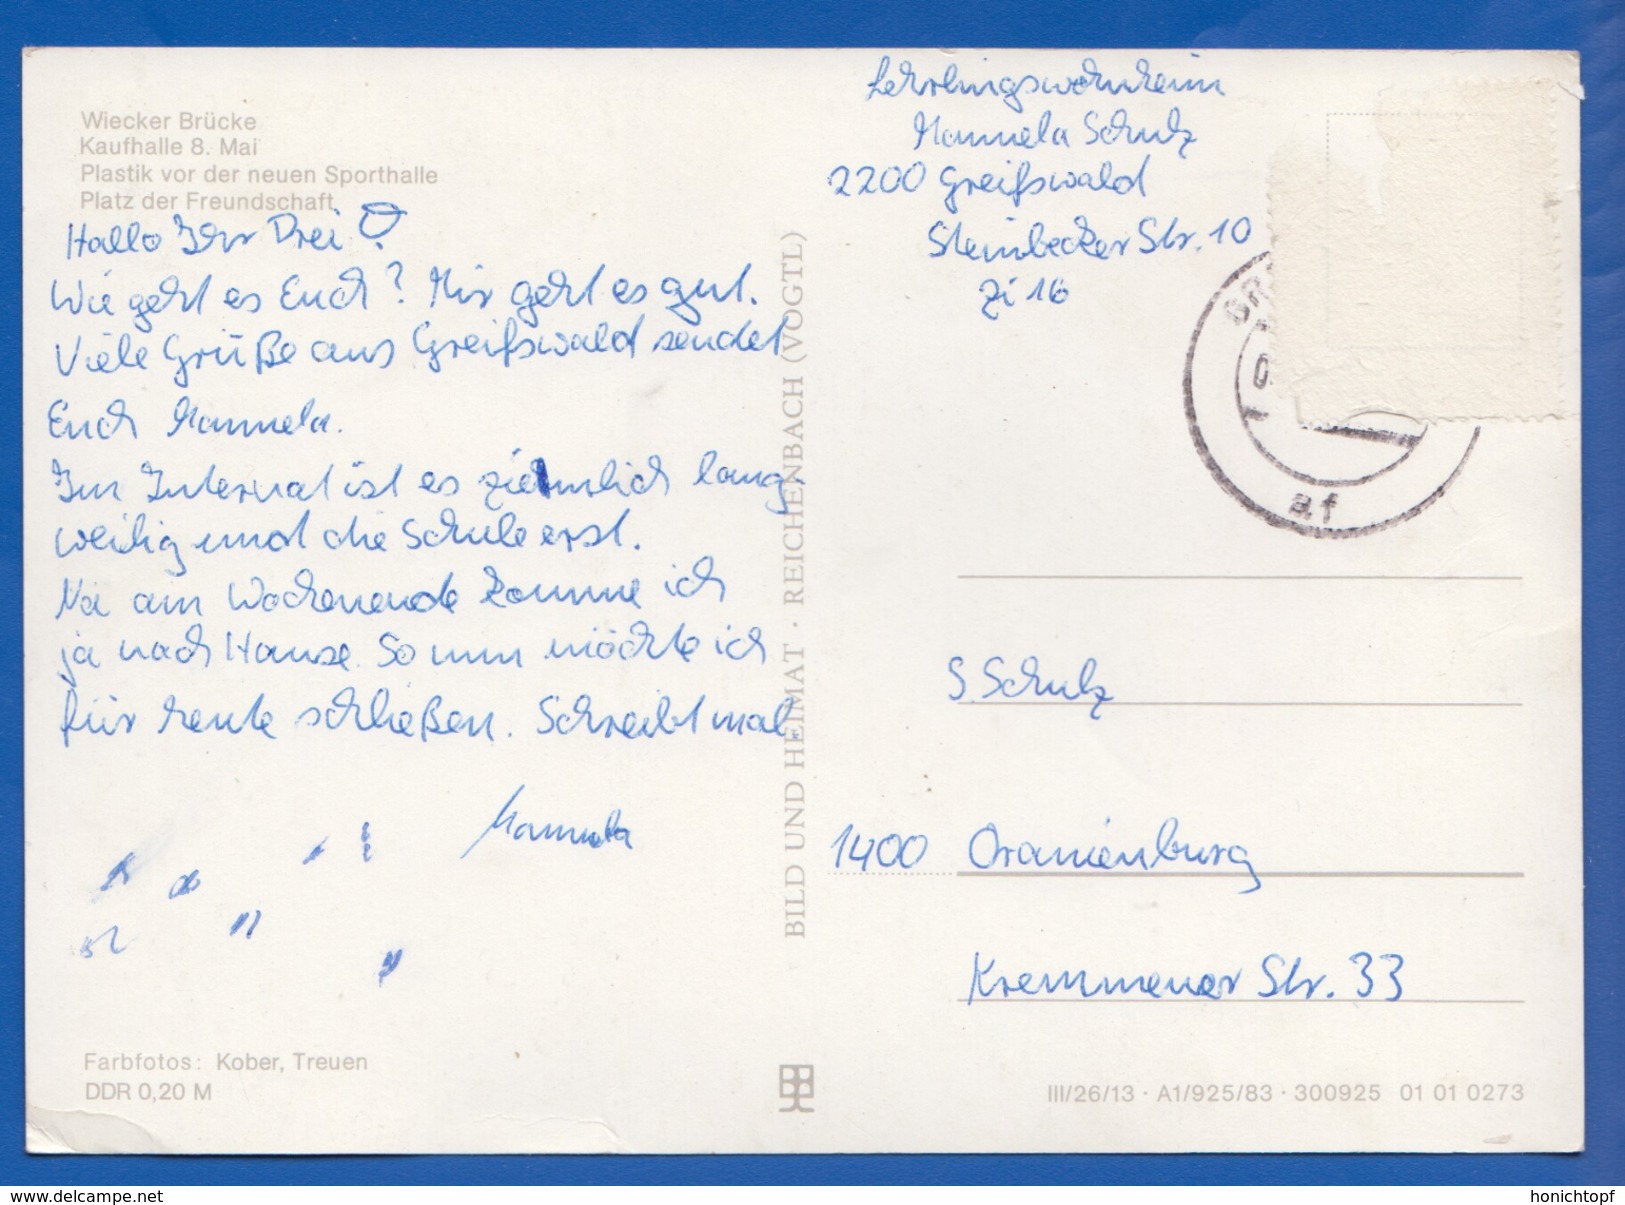 Wiecker Brücke
Kaufhalle 8. Mai
Plastik vor der neuen Sporthalle
Platz der Freundschaft
Hallo Ihr Drei!
Wie geht es Euch? Mir geht es gut.
Viele Grüße aus Greifswald sendet
Euch Manuela.
Im Internat ist es ziemlich lang-
weilig und die Schule erst.
Na am Wochenende komme ich
ja nach Hause. So nun möchte ich
für heute schließen. Schreibt mal.
Manuela
Farbfotos: Kober, Treuen
DDR 0,20 M
BILD UND HEIMAT · REICHENBACH (VOGTL)
Lehrlingswohnheim
Manuela Schulz
2200 Greifswald
Steinbecker Str. 10
Zi 16
af
S. Schulz
1400 Oranienburg
Kremmener Str. 33
III/26/13 · A1/925/83 · 300925 01 01 0273
www.delcampe.net
honichtopf